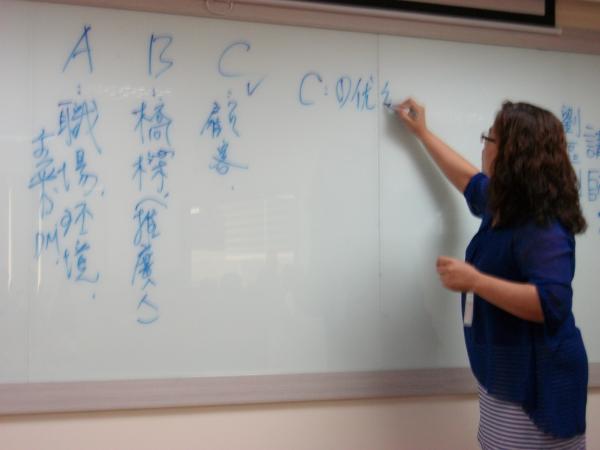 A：職場、环境、
DM
B：橋樑(推廣人)
C：顧客、
C：①优
劉